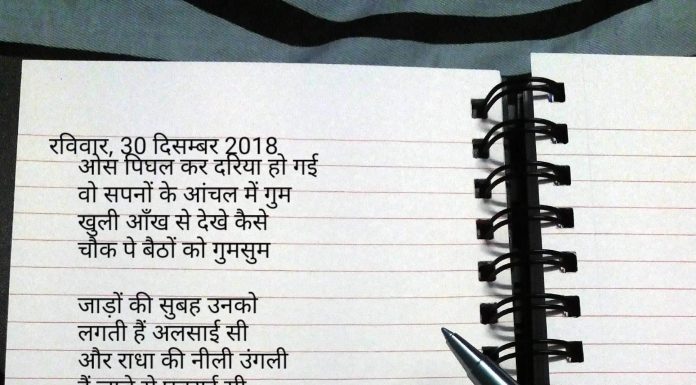 रविवार, 30 दिसम्बर 2018
ओस पिघल कर दरिया हो गई
वो सपनों के आंचल में गुम
खुली आँख से देखे कैसे
चौक पे बैठों को गुमसुम
जाड़ों की सुबह उनको
लगती हैं अलसाई सी
और राधा की नीली उंगली